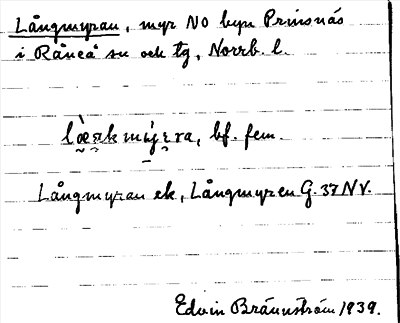 Långmyran, myr NO byn Prinsnäs
i Råneå sn och tg, Norrb. l.
bf. fem.
Långmyran ek, Långmyren G. 37 NV.
Edvin Brännström 1939.